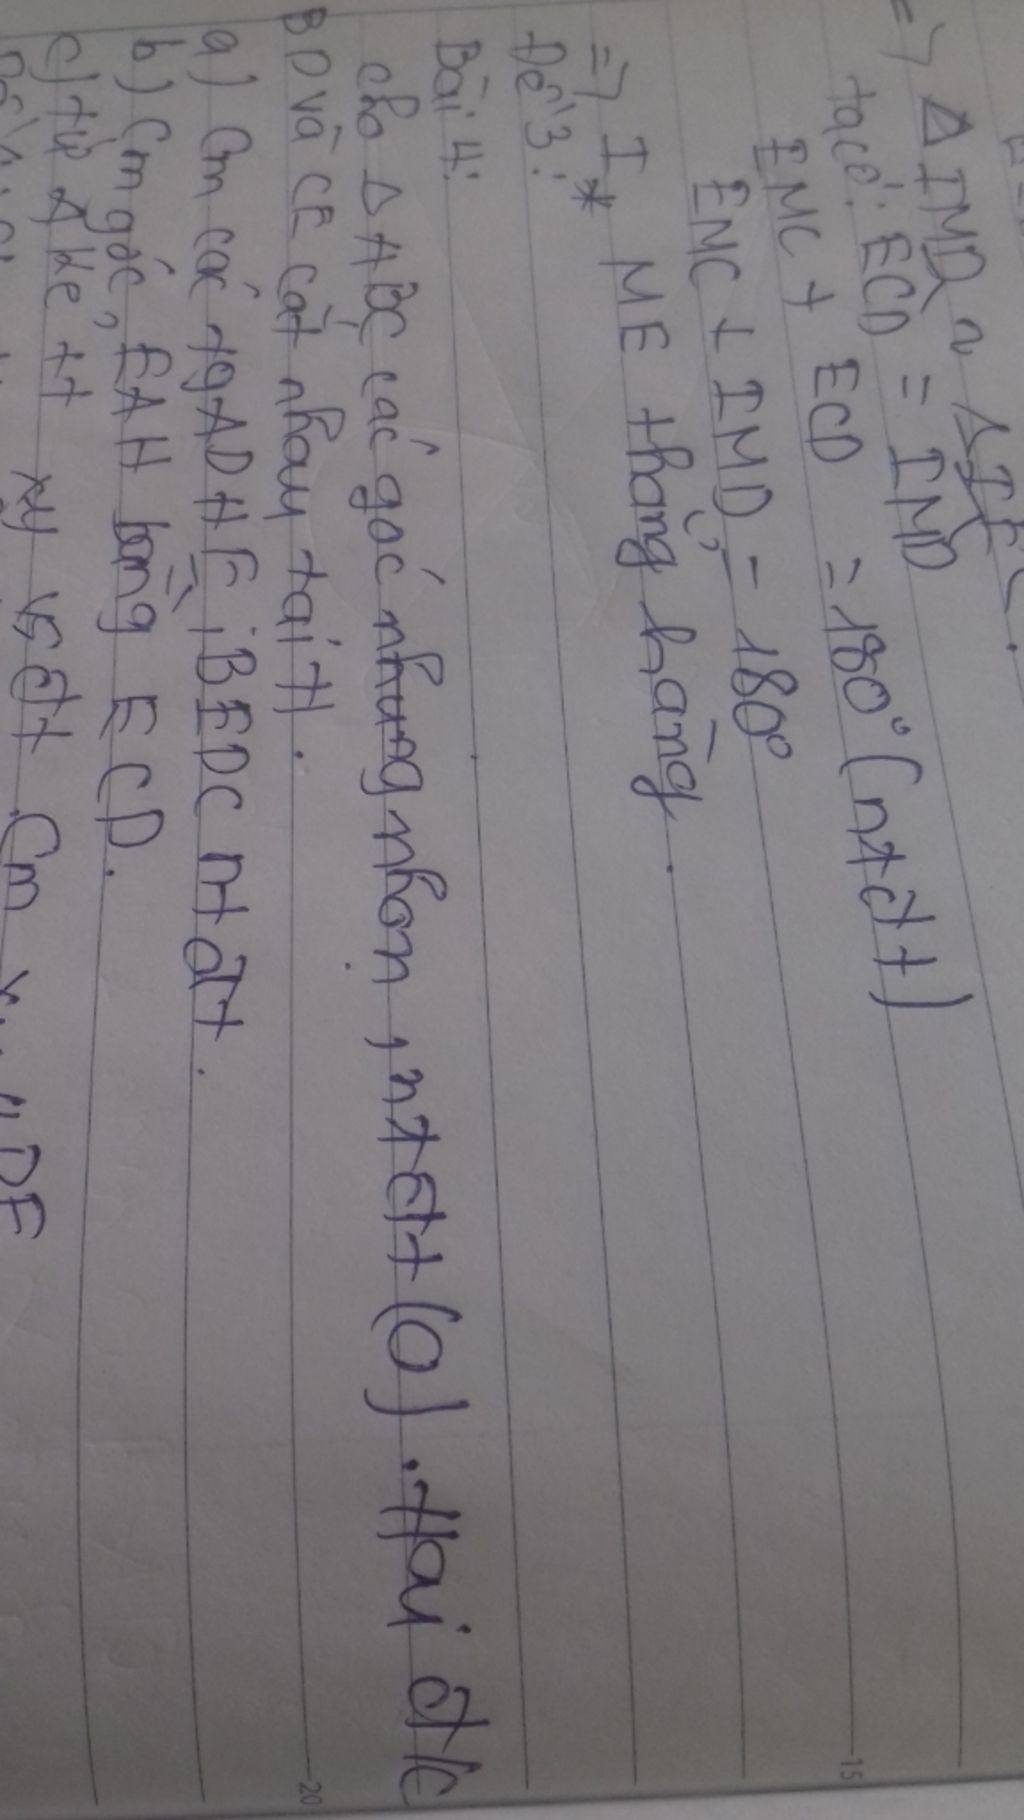 => Δ IMD ~ Δ IEC.
tacó: ECD = IMD
EMC + ECD = 180° (ntđt)
EMC + IMD = 180°
=> I * ME thẳng hàng.
Đề 3:
Bài 4:
cho Δ ABC các góc nhưng nhọn, ntđtt (O). Hai đk
BD và CE cắt nhau tại H.
a) Cm các tgADHE, BEDC ntđt.
b) Cm góc, EAH bằng ECD.
c) từ A kẻ tt xy vs đt Cm xy // DE
15
20